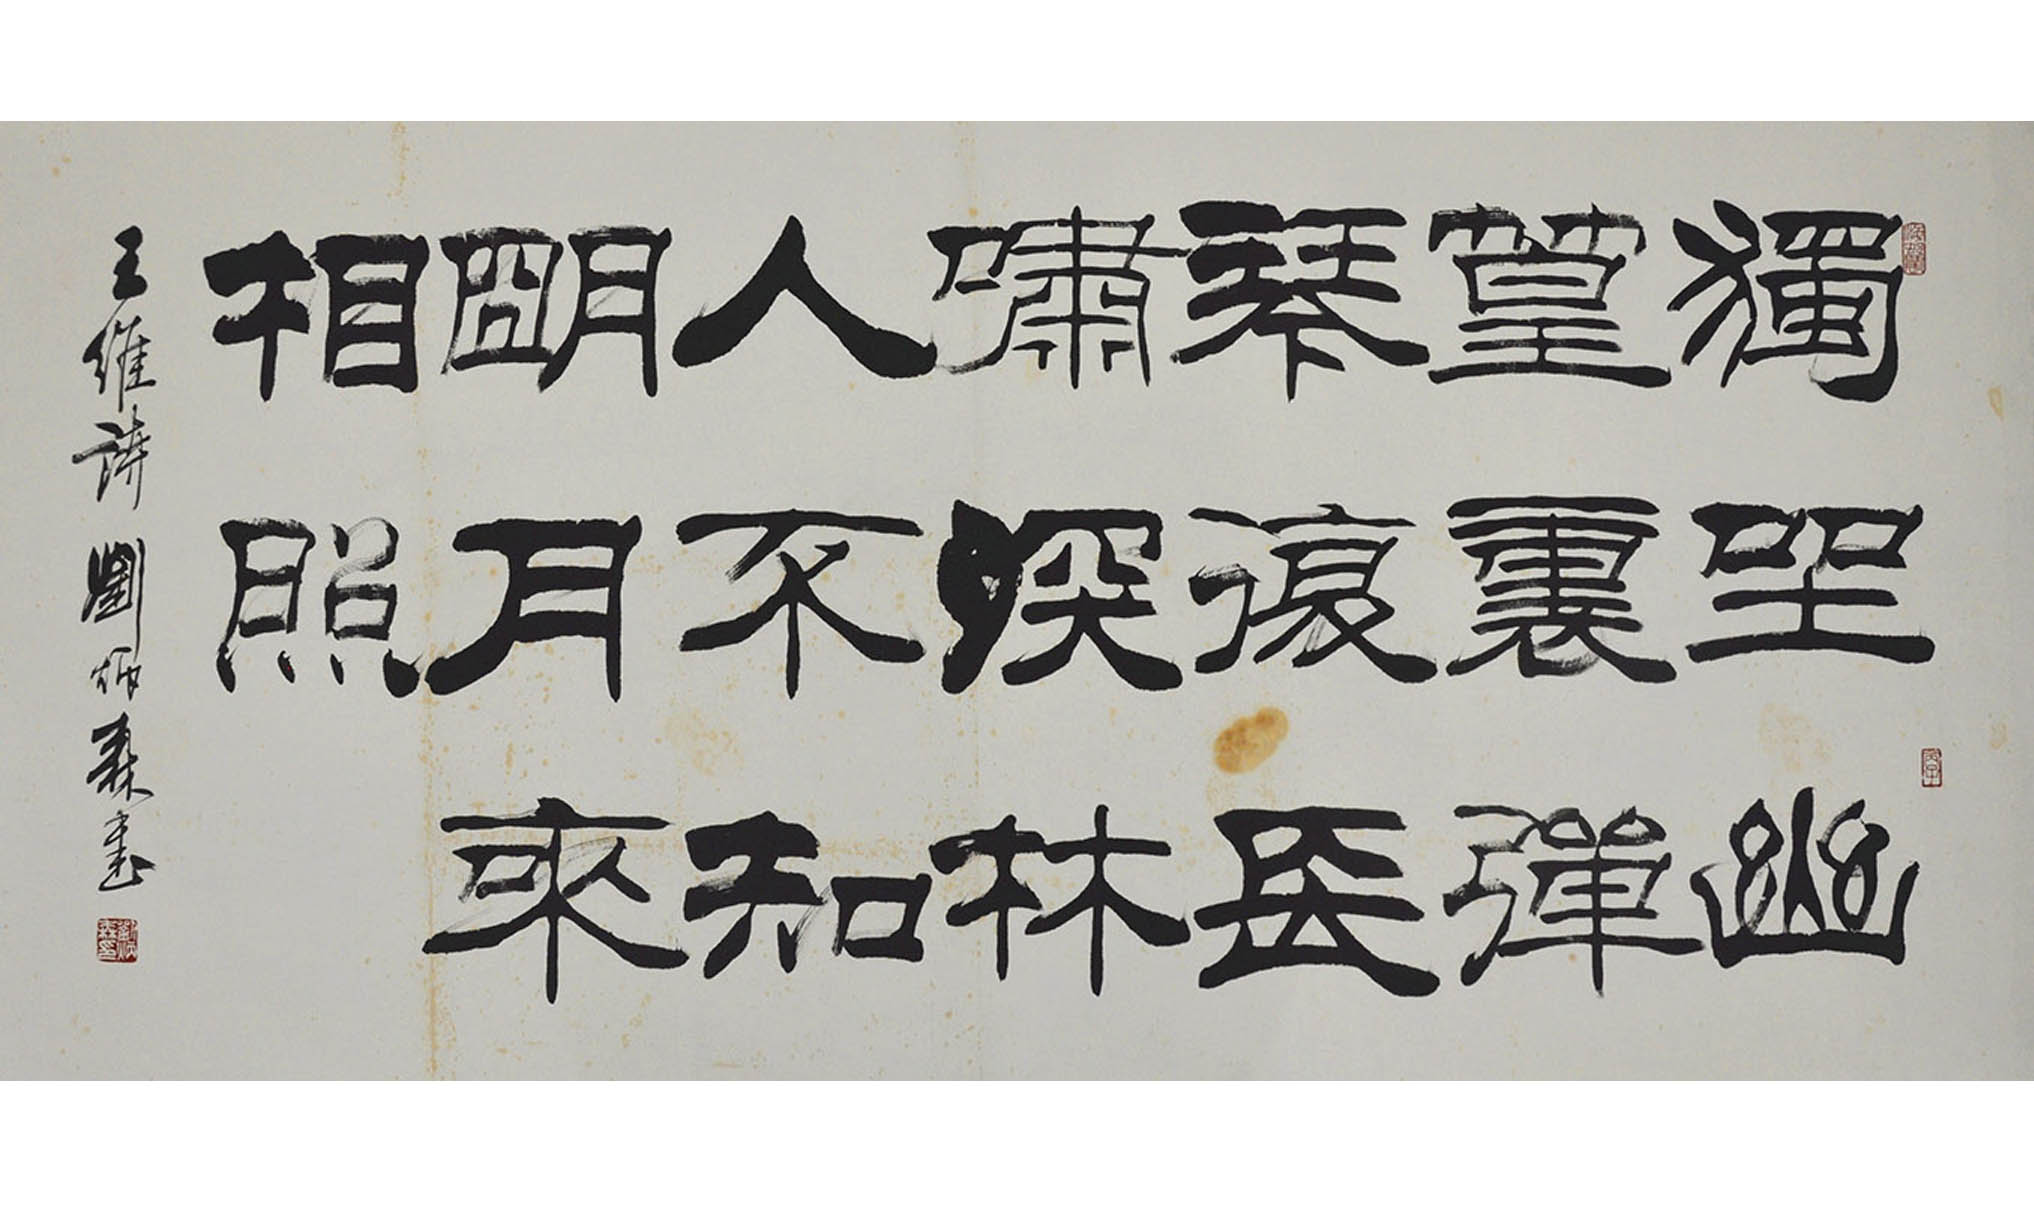 獨坐幽
篁裏彈
琴復長
嘯深林
人不知
朙月來
相照
王維詩 劉炳森書
劉炳森印